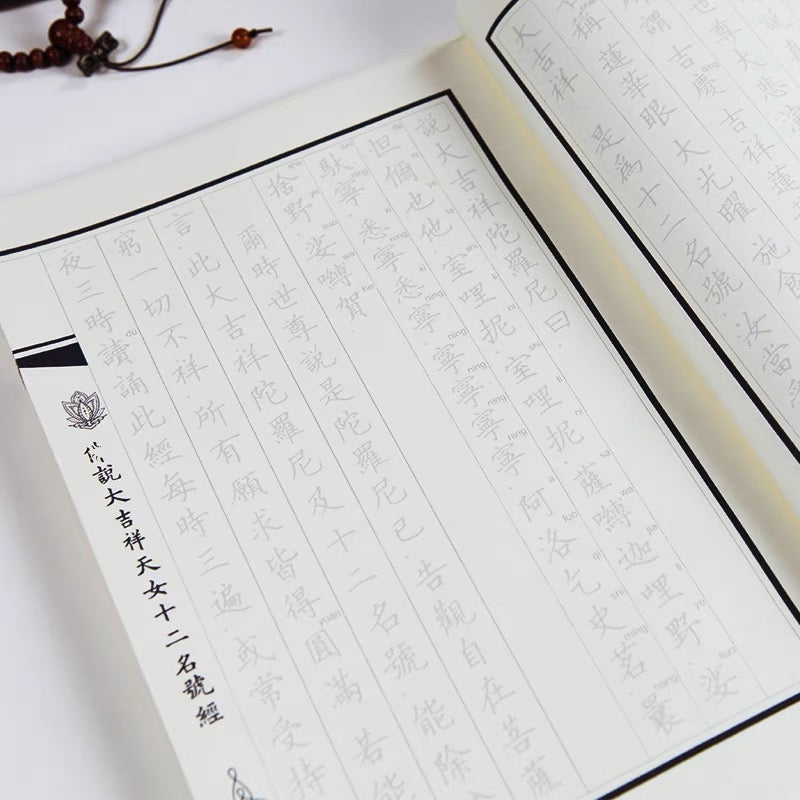 世尊大悲演
謂吉慶吉祥蓮
稱蓮華眼大光曜施食
大吉祥是為十二名號汝當受
說大吉祥陀羅尼曰
怛儞也他室哩抳室哩抳薩嚩迦哩野娑
馱寧悉寧悉寧寧寧寧寧阿洛乞史茗曩
捨野娑嚩賀
爾時世尊說是陀羅尼已告觀自在菩薩
言此大吉祥陀羅尼及十二名號能除
窮一切不祥所有願求皆得圓滿若能
夜三時讀誦此經每時三遍或常受持
佛說大吉祥天女十二名號經